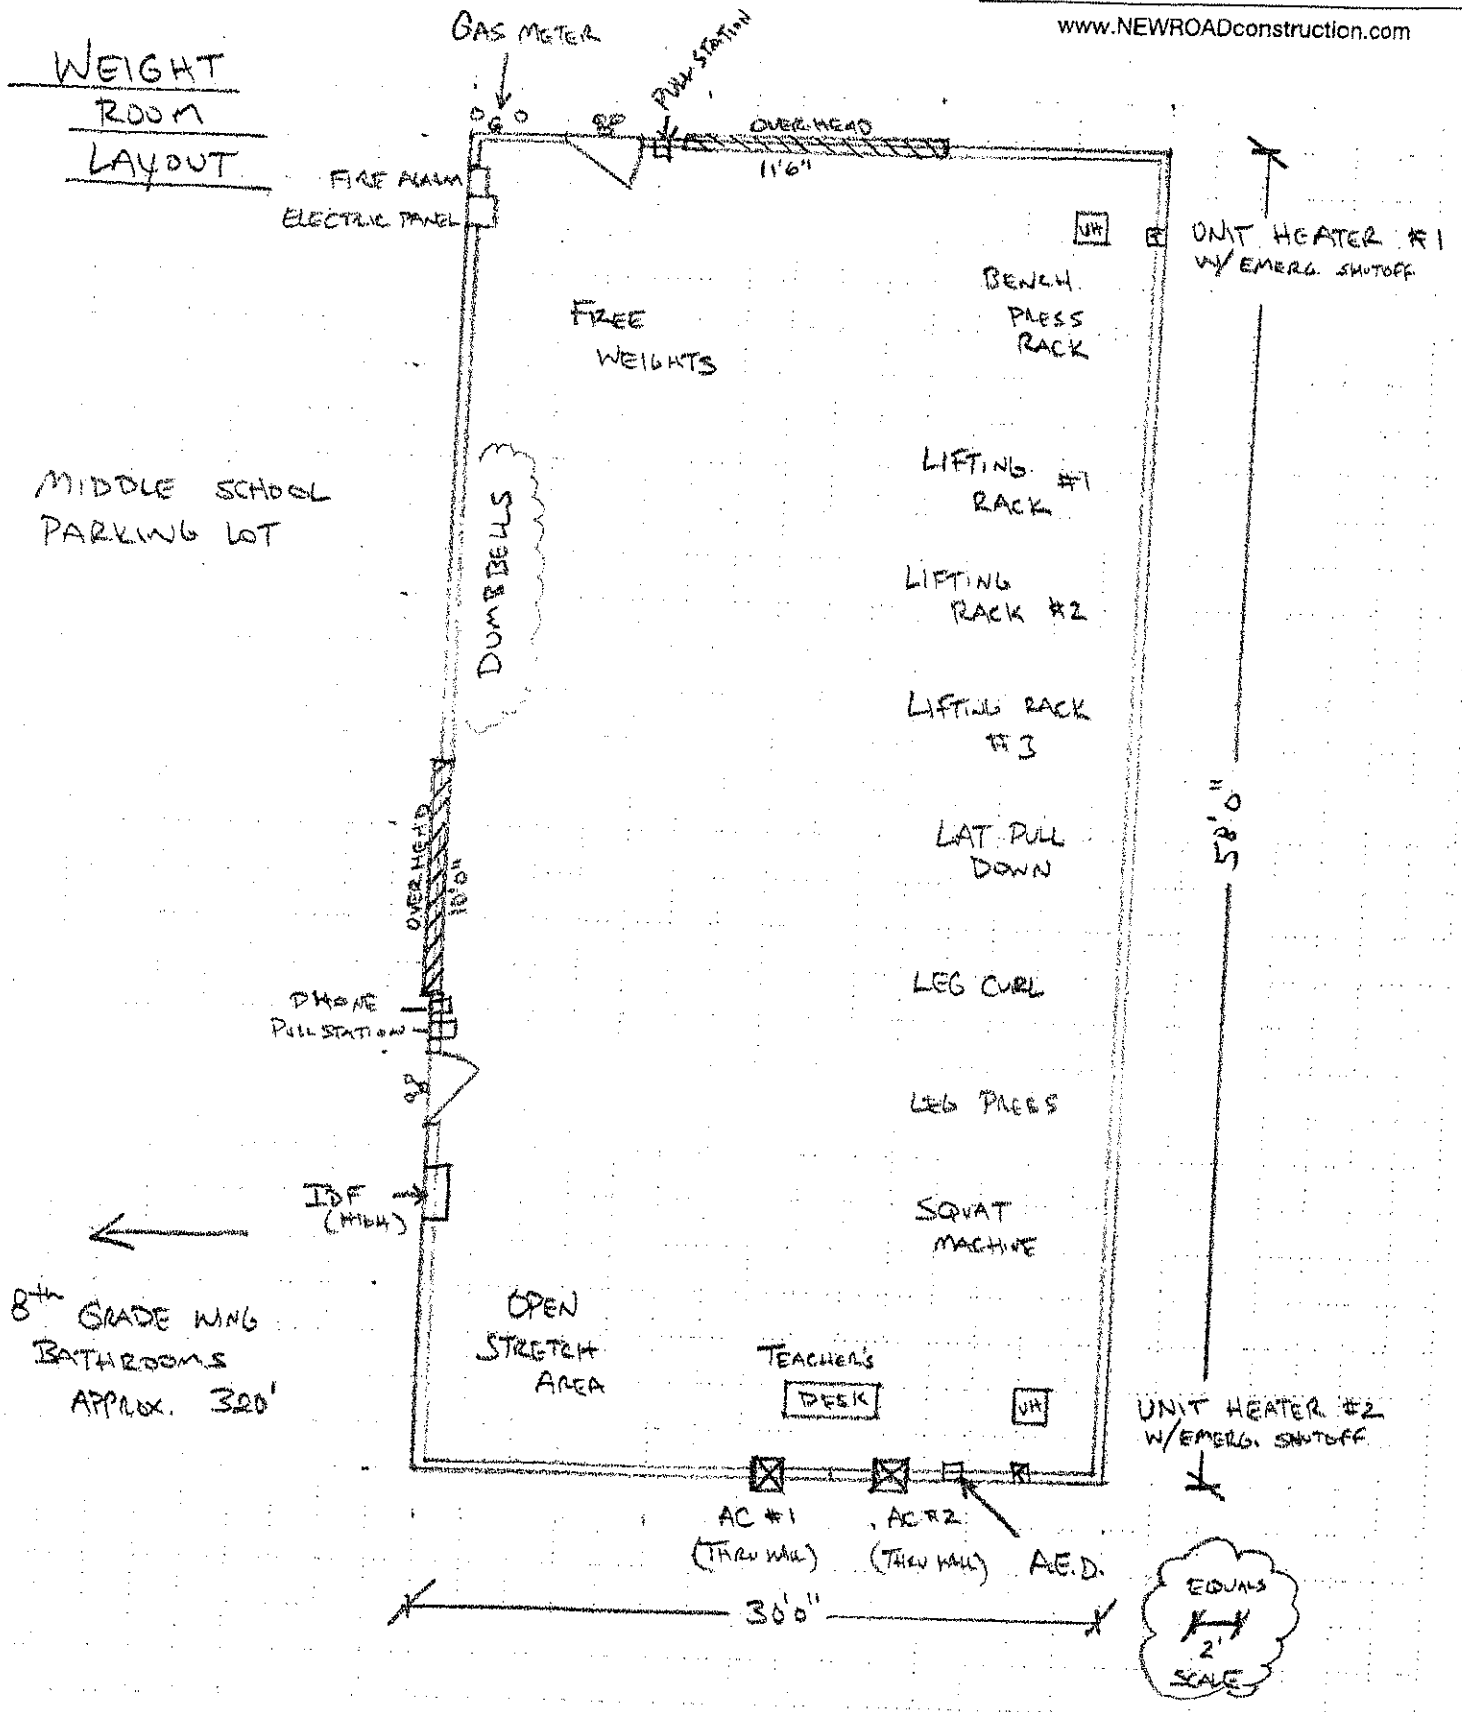 www.NEWROADconstruction.com
WEIGHT
ROOM
LAYOUT
GAS METER
PULL STATION
G
OVERHEAD
11'6"
FIRE ALARM
ELECTRIC PANEL
UH
UNIT HEATER #1
W/ EMERG. SHUTOFF
BENCH
PRESS
RACK
FREE
WEIGHTS
LIFTING
RACK #1
MIDDLE SCHOOL
PARKING LOT
DUMBBELLS
LIFTING
RACK #2
LIFTING RACK
#3
OVERHEAD
10'0"
LAT PULL
DOWN
58'0"
LEG CURL
PHONE
PULL STATION
LEG PRESS
IDF
(HIGH)
SQUAT
MACHINE
8th GRADE WING
BATHROOMS
APPROX. 320'
OPEN
STRETCH
AREA
TEACHER'S
DESK
UH
UNIT HEATER #2
W/ EMERG. SHUTOFF
AC #1
(THRU WALL)
AC #2
(THRU WALL)
A.E.D.
30'0"
EQUALS
2'
SCALE